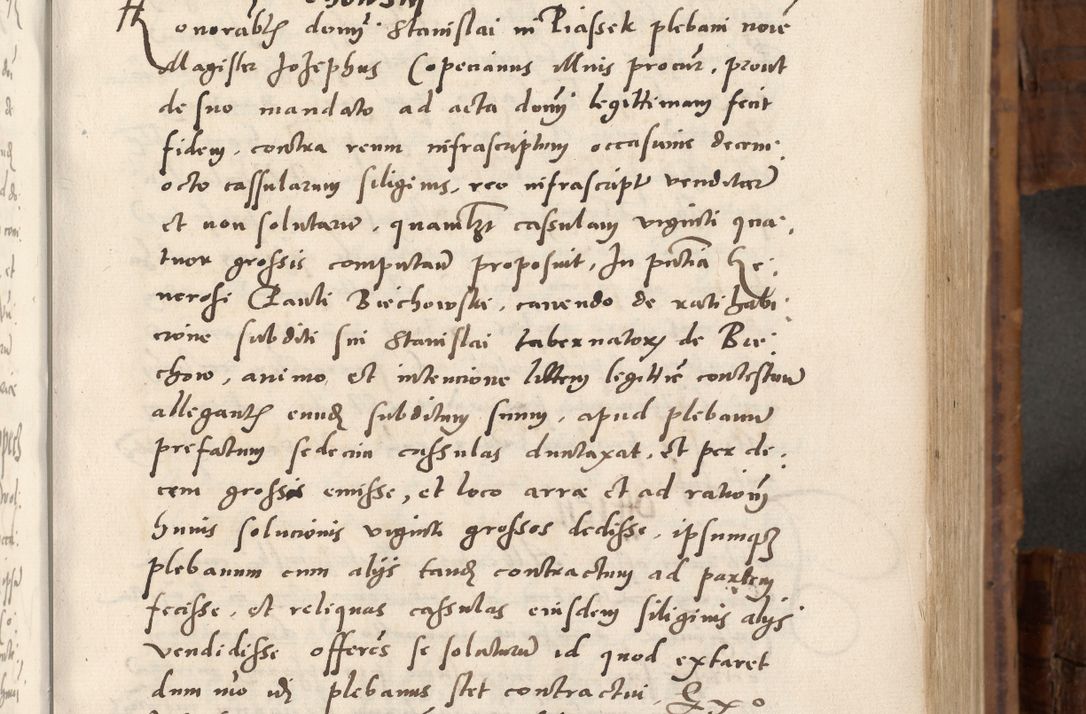 onorab domi Stanislai in Piassek plebani noie
Magister Josephus Copecianus illius procur. prout
de suo mandato ad acta domi legittimam fecit
fidem. contra reum infrascriptum occasione decem
octo cassularum siliginis. reo infrascript venditar
et non solutaru. quamlzt cassulam viginti qua
tuor grossis computan proposuit. In pntia Ge
nerosi Pauli Biechowski. cavendo de rati habi
cione subditi sui Stanislai tabernatorz de Bie
chow. animo et intencione littem legittie contestan
allegantz eundz subditum suum. apud plebanu
prefatum sedecim cassulas duntaxat. et per de
cem grossis emisse, et loco arrae et ad rationem
huius solucionis viginti grossos dedisse. ipsumqz
plebanum cum alijs tandz contractum ad partem
fecisse. et reliquas cassulas eiusdem siliginis alijs
vendidisse offeres se soluturu id quod extaret
dum mo idz plebanus stet contractui.